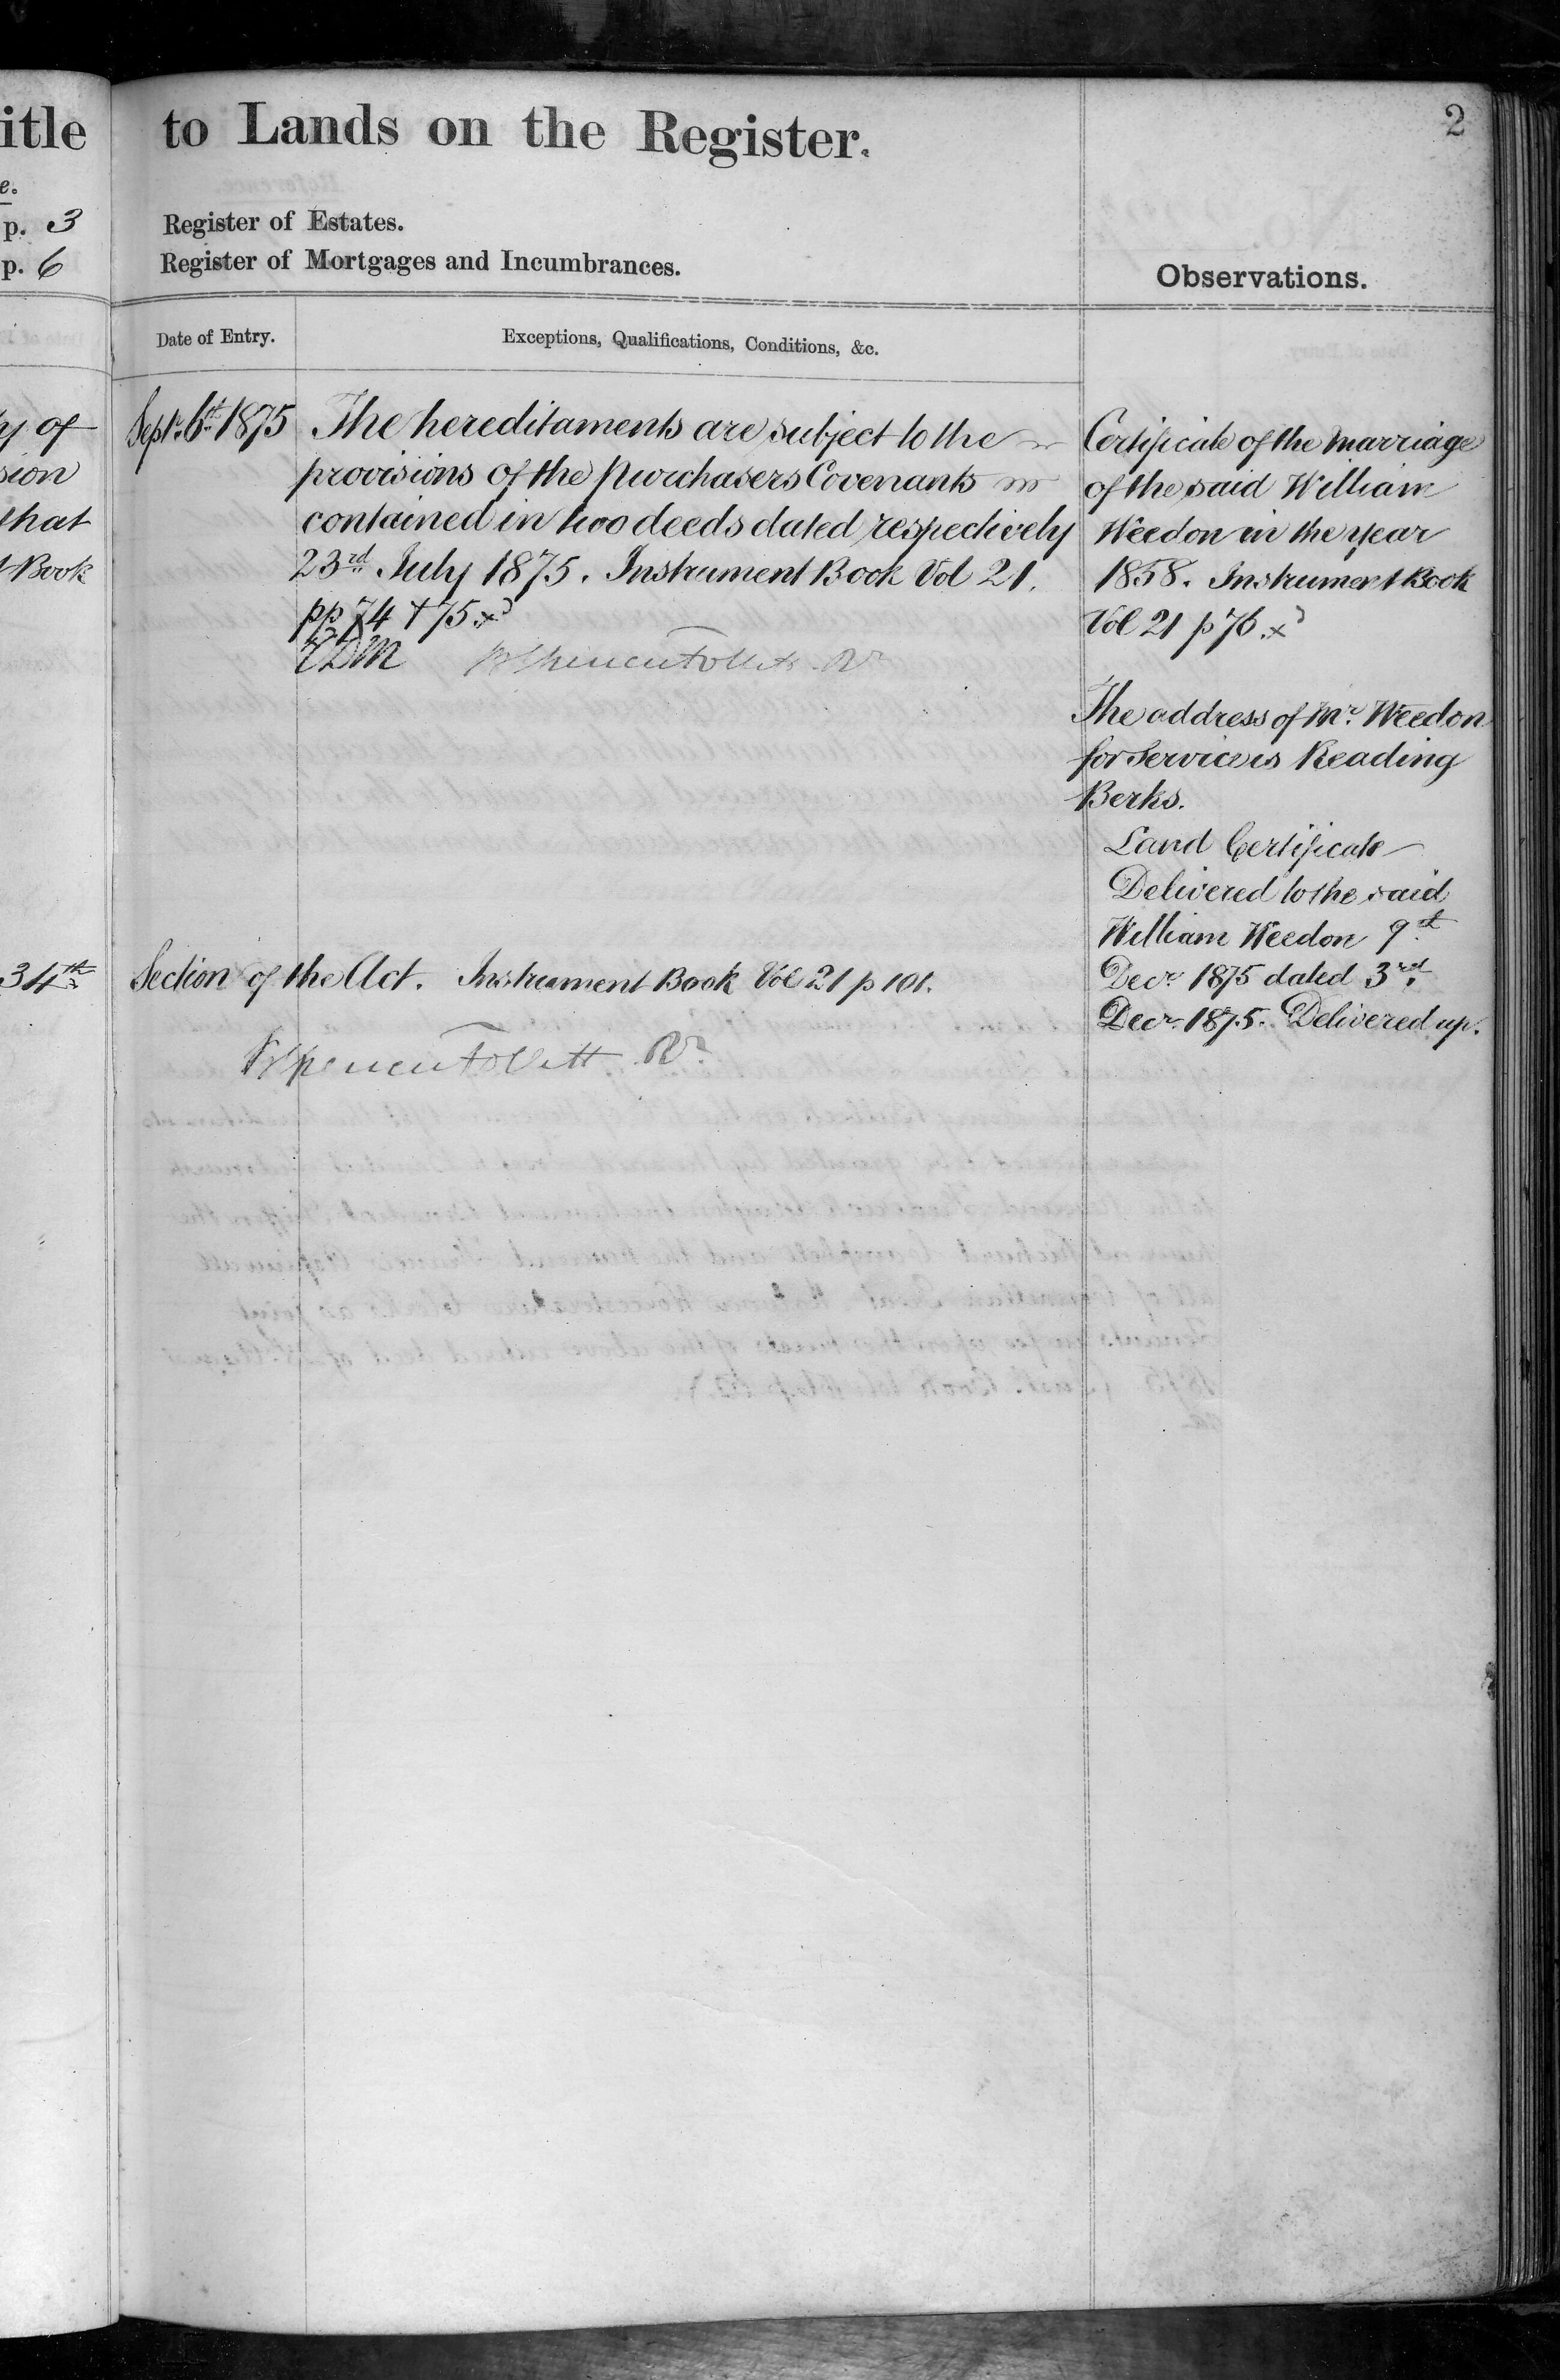 itle
e.
p. 3
p. 6
of
sion
that
Book
34th
to Lands on the Register.
2
Register of Estates.
Register of Mortgages and Incumbrances.
Observations.
Date of Entry.
Exceptions, Qualifications, Conditions, &c.
Septr. 6th 1875
The hereditaments are subject to the
provisions of the purchasers Covenants
contained in two deeds dated respectively
23rd July 1875. Instrument Book Vol 21.
pp 74 + 75.
Section of the Act. Instrument Book Vol 21 p 101.
Certificate of the Marriage
of the said William
Weedon in the year
1858. Instrument Book
Vol 21 p 76.
The address of Mr. Weedon
for Service is Reading
Berks.
Land Certificate
Delivered to the said
William Weedon 9th
Decr. 1875 dated 3rd
Decr. 1875. Delivered up.